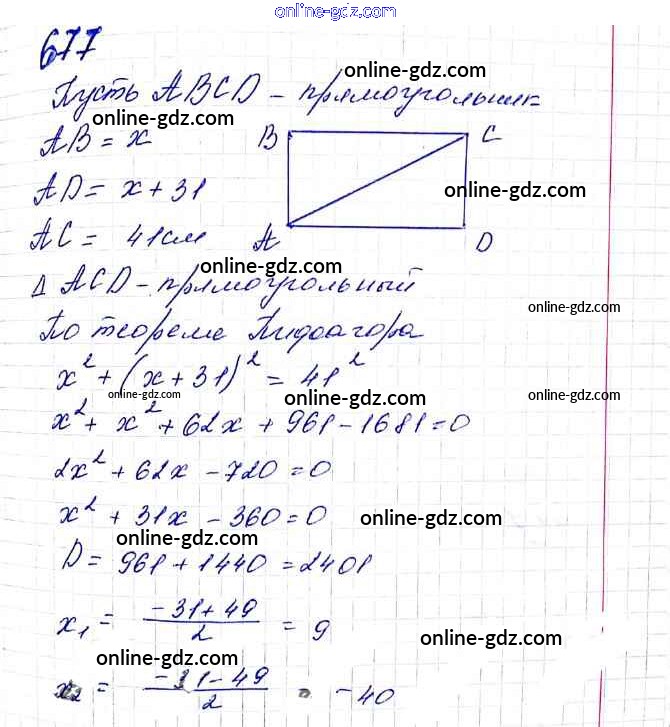 online-gdz.com
677
online-gdz.com
Пусть ABCD - прямоугольник
online-gdz.com
AB = x
B C
AD = x + 31
online-gdz.com
AC = 41см
A D
online-gdz.com
Δ ACD - прямоугольный
online-gdz.com
По теореме Пидоагора
x² + (x + 31)² = 41²
online-gdz.com
online-gdz.com
online-gdz.com
x² + x² + 62x + 961 - 1681 = 0
2x² + 62x - 720 = 0
x² + 31x - 360 = 0
online-gdz.com
online-gdz.com
D = 961 + 1440 = 2401
x₁ = (-31 + 49)/2 = 9
online-gdz.com
online-gdz.com
x₂ = (-31 - 49)/2 = -40